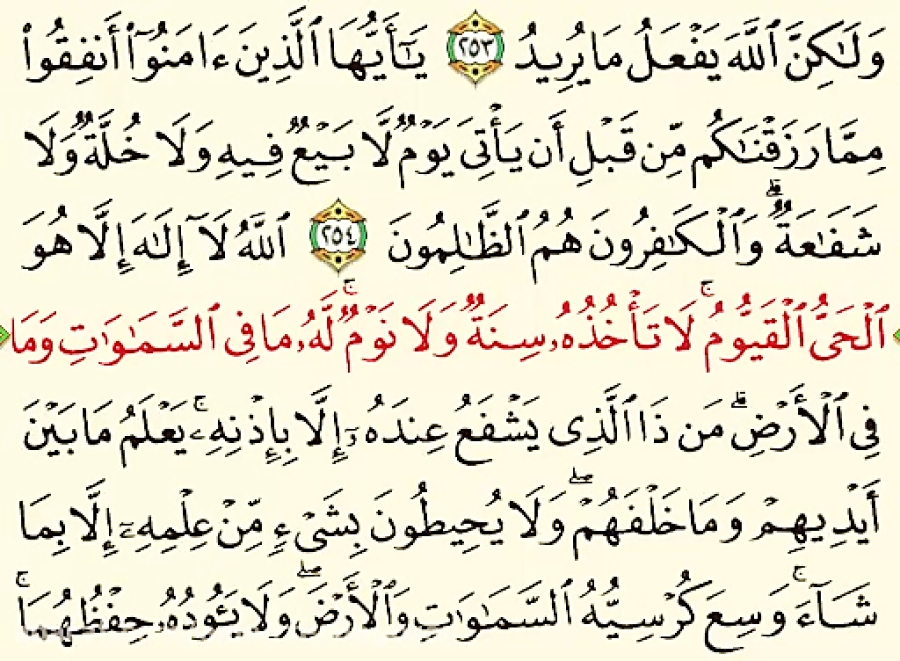 وَلَـٰكِنَّ ٱللَّهَ يَفْعَلُ مَا يُرِيدُ ٢٥٣ يَـٰٓأَيُّهَا ٱلَّذِينَ ءَامَنُوٓا۟ أَنفِقُوا۟
مِمَّا رَزَقْنَـٰكُم مِّن قَبْلِ أَن يَأْتِىَ يَوْمٌ لَّا بَيْعٌ فِيهِ وَلَا خُلَّةٌ وَلَا
شَفَـٰعَةٌ ۗ وَٱلْكَـٰفِرُونَ هُمُ ٱلظَّـٰلِمُونَ ٢٥٤ ٱللَّهُ لَآ إِلَـٰهَ إِلَّا هُوَ
ٱلْحَىُّ ٱلْقَيُّومُ ۚ لَا تَأْخُذُهُۥ سِنَةٌ وَلَا نَوْمٌ ۚ لَّهُۥ مَا فِى ٱلسَّمَـٰوَٰتِ وَمَا
فِى ٱلْأَرْضِ ۗ مَن ذَا ٱلَّذِى يَشْفَعُ عِندَهُۥٓ إِلَّا بِإِذْنِهِۦ ۚ يَعْلَمُ مَا بَيْنَ
أَيْدِيهِمْ وَمَا خَلْفَهُمْ ۖ وَلَا يُحِيطُونَ بِشَىْءٍ مِّنْ عِلْمِهِۦٓ إِلَّا بِمَا
شَآءَ ۚ وَسِعَ كُرْسِيُّهُ ٱلسَّمَـٰوَٰتِ وَٱلْأَرْضَ ۖ وَلَا يَـُٔودُهُۥ حِفْظُهُمَا ۚ